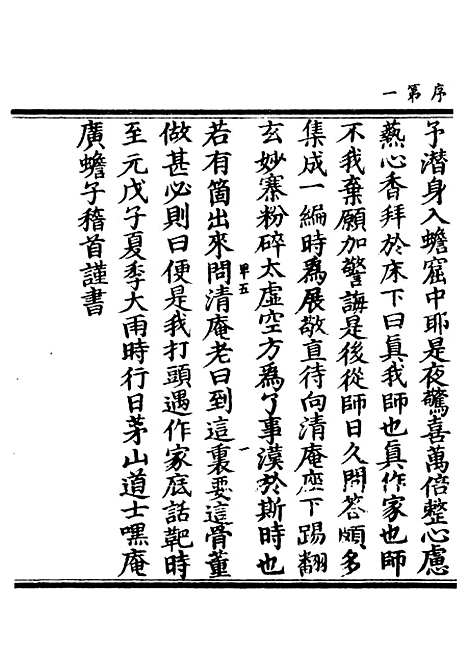 序第一
予潛身入蟾窟中耶是夜驚喜萬倍整心慮
爇心香拜於床下曰眞我師也眞作家也師
不我棄願加警誨是後從師日久問答頗多
集成一編時爲展敬直待向清庵座下踢翻
玄妙寨粉碎太虛空方爲了事漢於斯時也
甲五 一
若有箇出來問清庵老曰到這裏要這骨董
做甚必則曰便是我打頭遇作家底話靶時
至元戊子夏季大雨時行日茅山道士嘿庵
廣蟾子稽首謹書